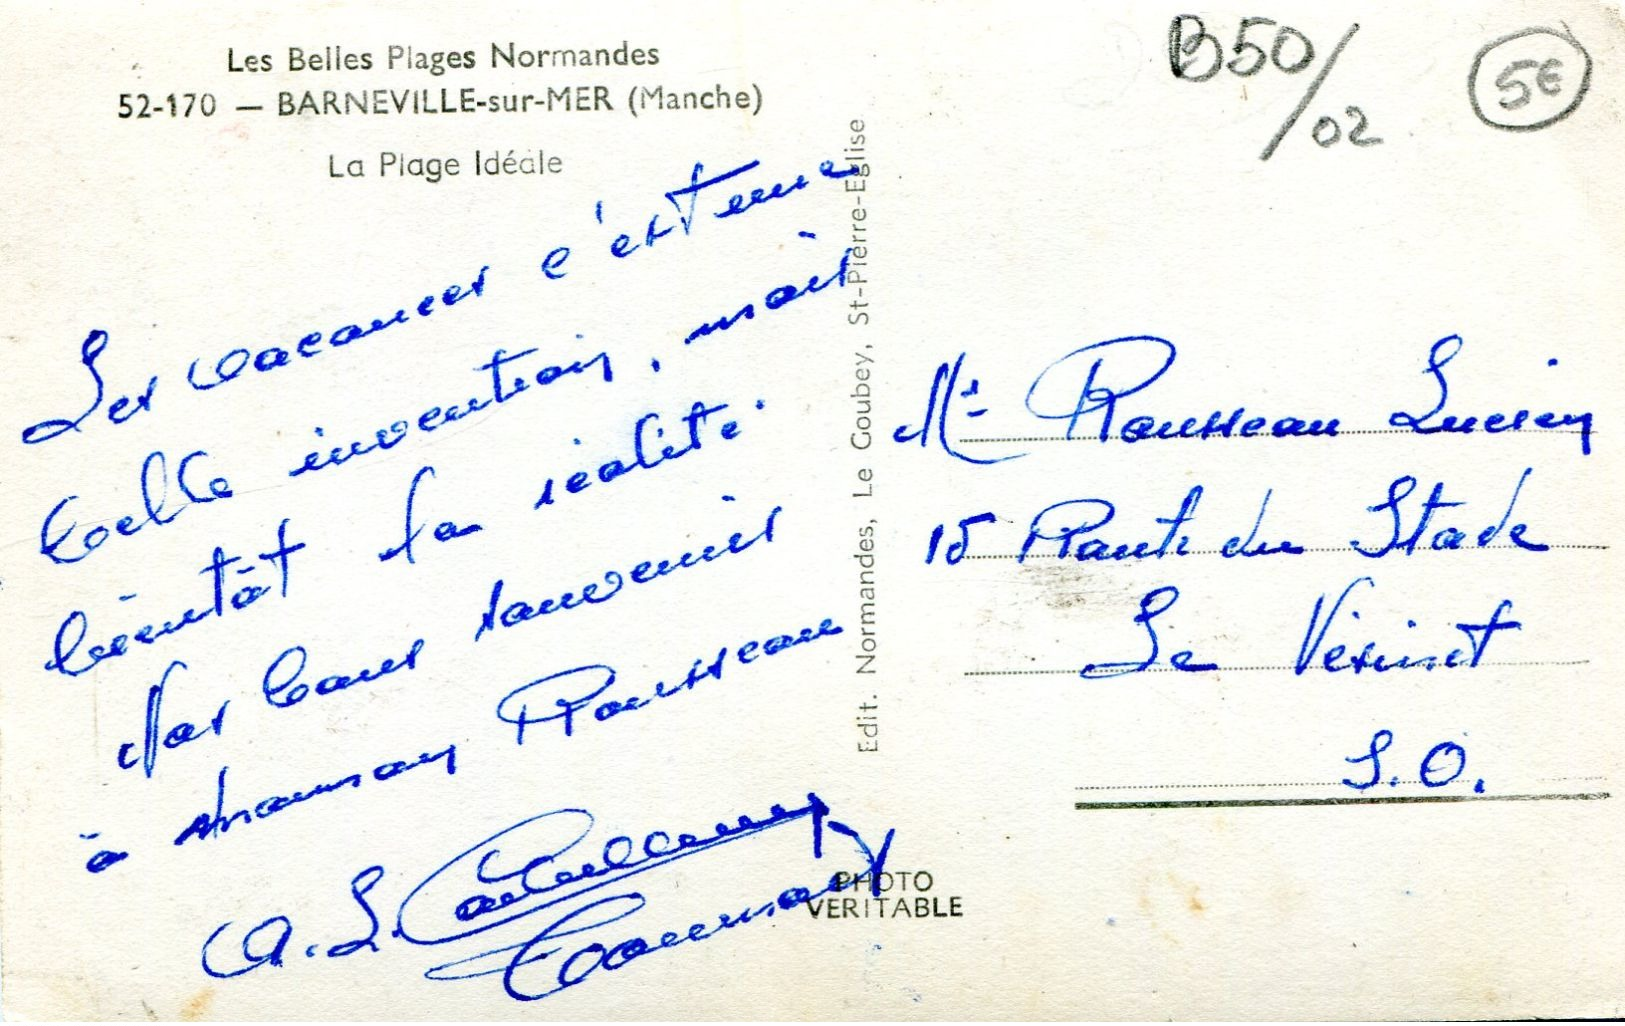 Les Belles Plages Normandes
52-170 — BARNEVILLE-sur-MER (Manche)
La Plage Idéale
Les vacances c'est une
belle invention, mais
bientôt la réalité.
Nos bons souvenirs
à maman Rousseau
A. L.
Edit. Normandes, Le Goubey, St-Pierre-Eglise
PHOTO
VERITABLE
B50/02
5€
Mr Rousseau Lucien
15 Route du Stade
Le Vésinet
S.O.